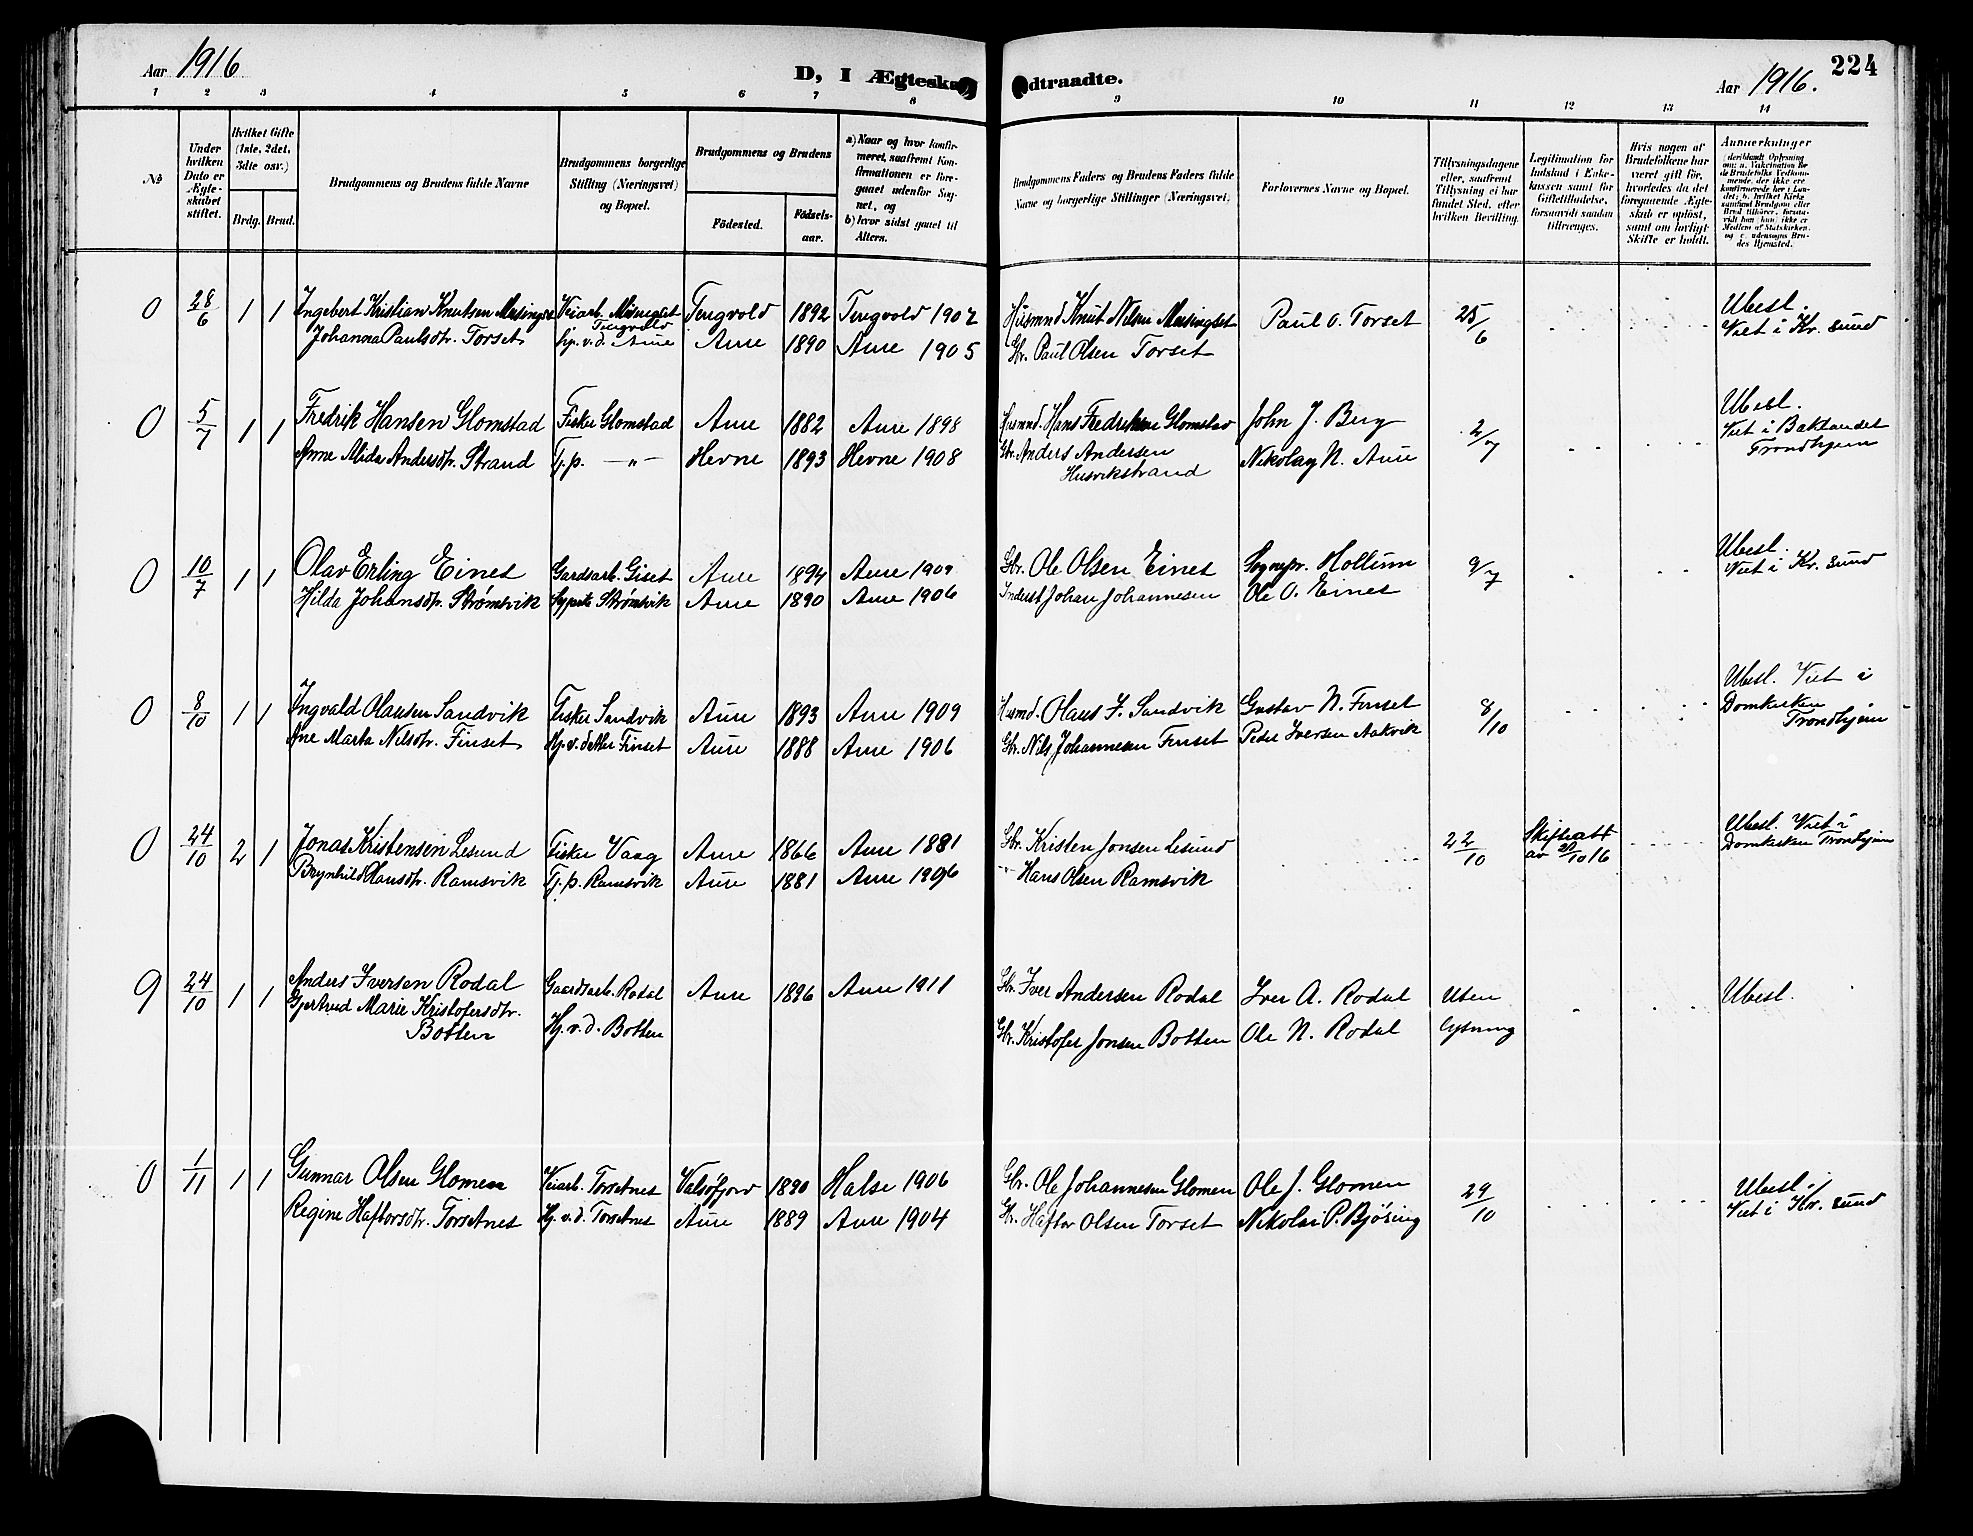 Aar 1916
D, I Ægteska
dtraadte.
Aar 1916.
224
1 2 3 4 5 6 7 8 9 10 11 12 13 14
No
Under hvilken Dato er Ægteskabet stiftet.
Hvilket Gifte (1ste, 2det, 3die osv.)
Brdg. Brud.
Brudgommens og Brudens fulde Navne
Brudgommens borgerlige Stilling (Næringsvei) og Bopæl.
Brudgommens og Brudens
Fødested.
Fødselsaar.
a) Naar og hvor konfirmeret, saafremt Konfirmationen er foregaaet udenfor Sognet, og
b) hvor sidst gaaet til Alters.
Brudgommens Faders og Brudens Faders fulde Navne og borgerlige Stillinger (Næringsvei).
Forlovernes Navne og Bopæl.
Tillysningsdagene eller, saafremt Tillysning ei har fundet Sted, efter hvilken Bevilling.
Legitimation for Indskud i Enkekassen samt for Giftetilladelse, forsaavidt saadan tiltrænges.
Hvis nogen af Brudefolkene har været gift før, hvorledes da det foregaaende Ægteskab er opløst, samt om lovligt Skifte er holdt.
Anmerkninger
0 28/6 1 1 Ingebert Kristian Knutsen Meisingset Veiarb. Meisingset Tingvold Tingvold 1892 Tingvold 1907 Husmnd Knut Nilsen Meisingset Paul O. Torset 25/6 Ubesl.
Johanna Paulsdtr. Torset Hj. v. d. Aure Aure 1890 Aure 1905 Gbr. Paul Olsen Torset Viet i Kr. sund
0 5/7 1 1 Fredrik Hansen Glomstad Fisker Glomstad Aure 1882 Aure 1898 Husmnd. Hans Fredriksen Glomstad John J. Berg 2/7 Ubesl.
Anne Alida Andersdtr. Strand Tj. p. —„— Hevne 1893 Hevne 1908 Gbr. Anders Andersen Nikolay N. Aure Viet i Baklandet
Husvikstrand Trondhjem
0 10/7 1 1 Olav Erling Eines Gardsarb. Giset Aure 1894 Aure 1909 Gbr. Ole Olsen Eines Sognepr. Hollum 9/7 Ubesl.
Hilda Johansdtr. Strømsvik Strømsvik Aure 1890 Aure 1906 Inderst Johan Johannesen Ole O. Eines Viet i Kr. sund
0 8/10 1 1 Ingvald Olausen Sandvik Fisker Sandvik Aure 1893 Aure 1909 Husmd. Olaus J. Sandvik Gustav N. Finset 8/10 Ubesl. Viet i
Ane Marta Nilsdtr. Finset Hj. v. d. Finset Aure 1888 Aure 1906 Gbr. Nils Johannesen Finset Peder Iversen Aakvik Domkirken
Trondhjem
0 24/10 2 1 Jonas Kristensen Lesund Fisker Vaag Aure 1866 Aure 1881 Gbr. Kristen Jonsen Lesund 22/10 Skifteatt Ubesl. Viet i
Brynhild Hansdtr. Ramsvik Tj. p. Ramsvik Aure 1881 Aure 1896 —„— Hans Olsen Ramsvik av 20/10 16 Domkirken Trondhjem
9 24/10 1 1 Anders Iversen Rodal Gaardsarb. Rodal Aure 1896 Aure 1911 Gbr. Iver Andersen Rodal Iver A. Rodal Uten Ubesl.
Gjertrud Marie Kristofersdtr.
Botten Hj. v. d. Botten Gbr. Kristofer Jonsen Botten Ole N. Rodal lysning
0 1/11 1 1 Gunnar Olsen Glomen Veiarb. Torsetnes Valsøfjord 1890 Halse 1906 Gbr. Ole Johannesen Glomen Ole J. Glomen 29/10 Ubesl.
Regine Haftorsdtr. Torsetnes Hj. v. d. Torsetnes Aure 1889 Aure 1904 Gbr. Haftor Olsen Torset Nikolai P. Bjøring Viet i Kr. sund